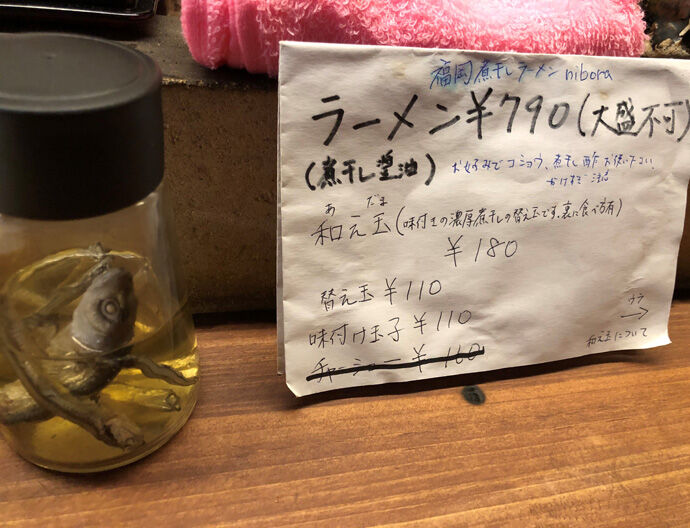 福岡煮干しラーメン nibora
ラーメン¥790(大盛不可)
(煮干し醤油)
お好みでコショウ、煮干し酢お使い下さい。
かけすぎ注意
あ だま
和え玉(味付きの濃厚煮干しの替え玉です。裏に食べ方有)
¥180
替え玉 ¥110
味付け玉子 ¥110
チャーシュー ¥160
ウラ
→
和え玉について